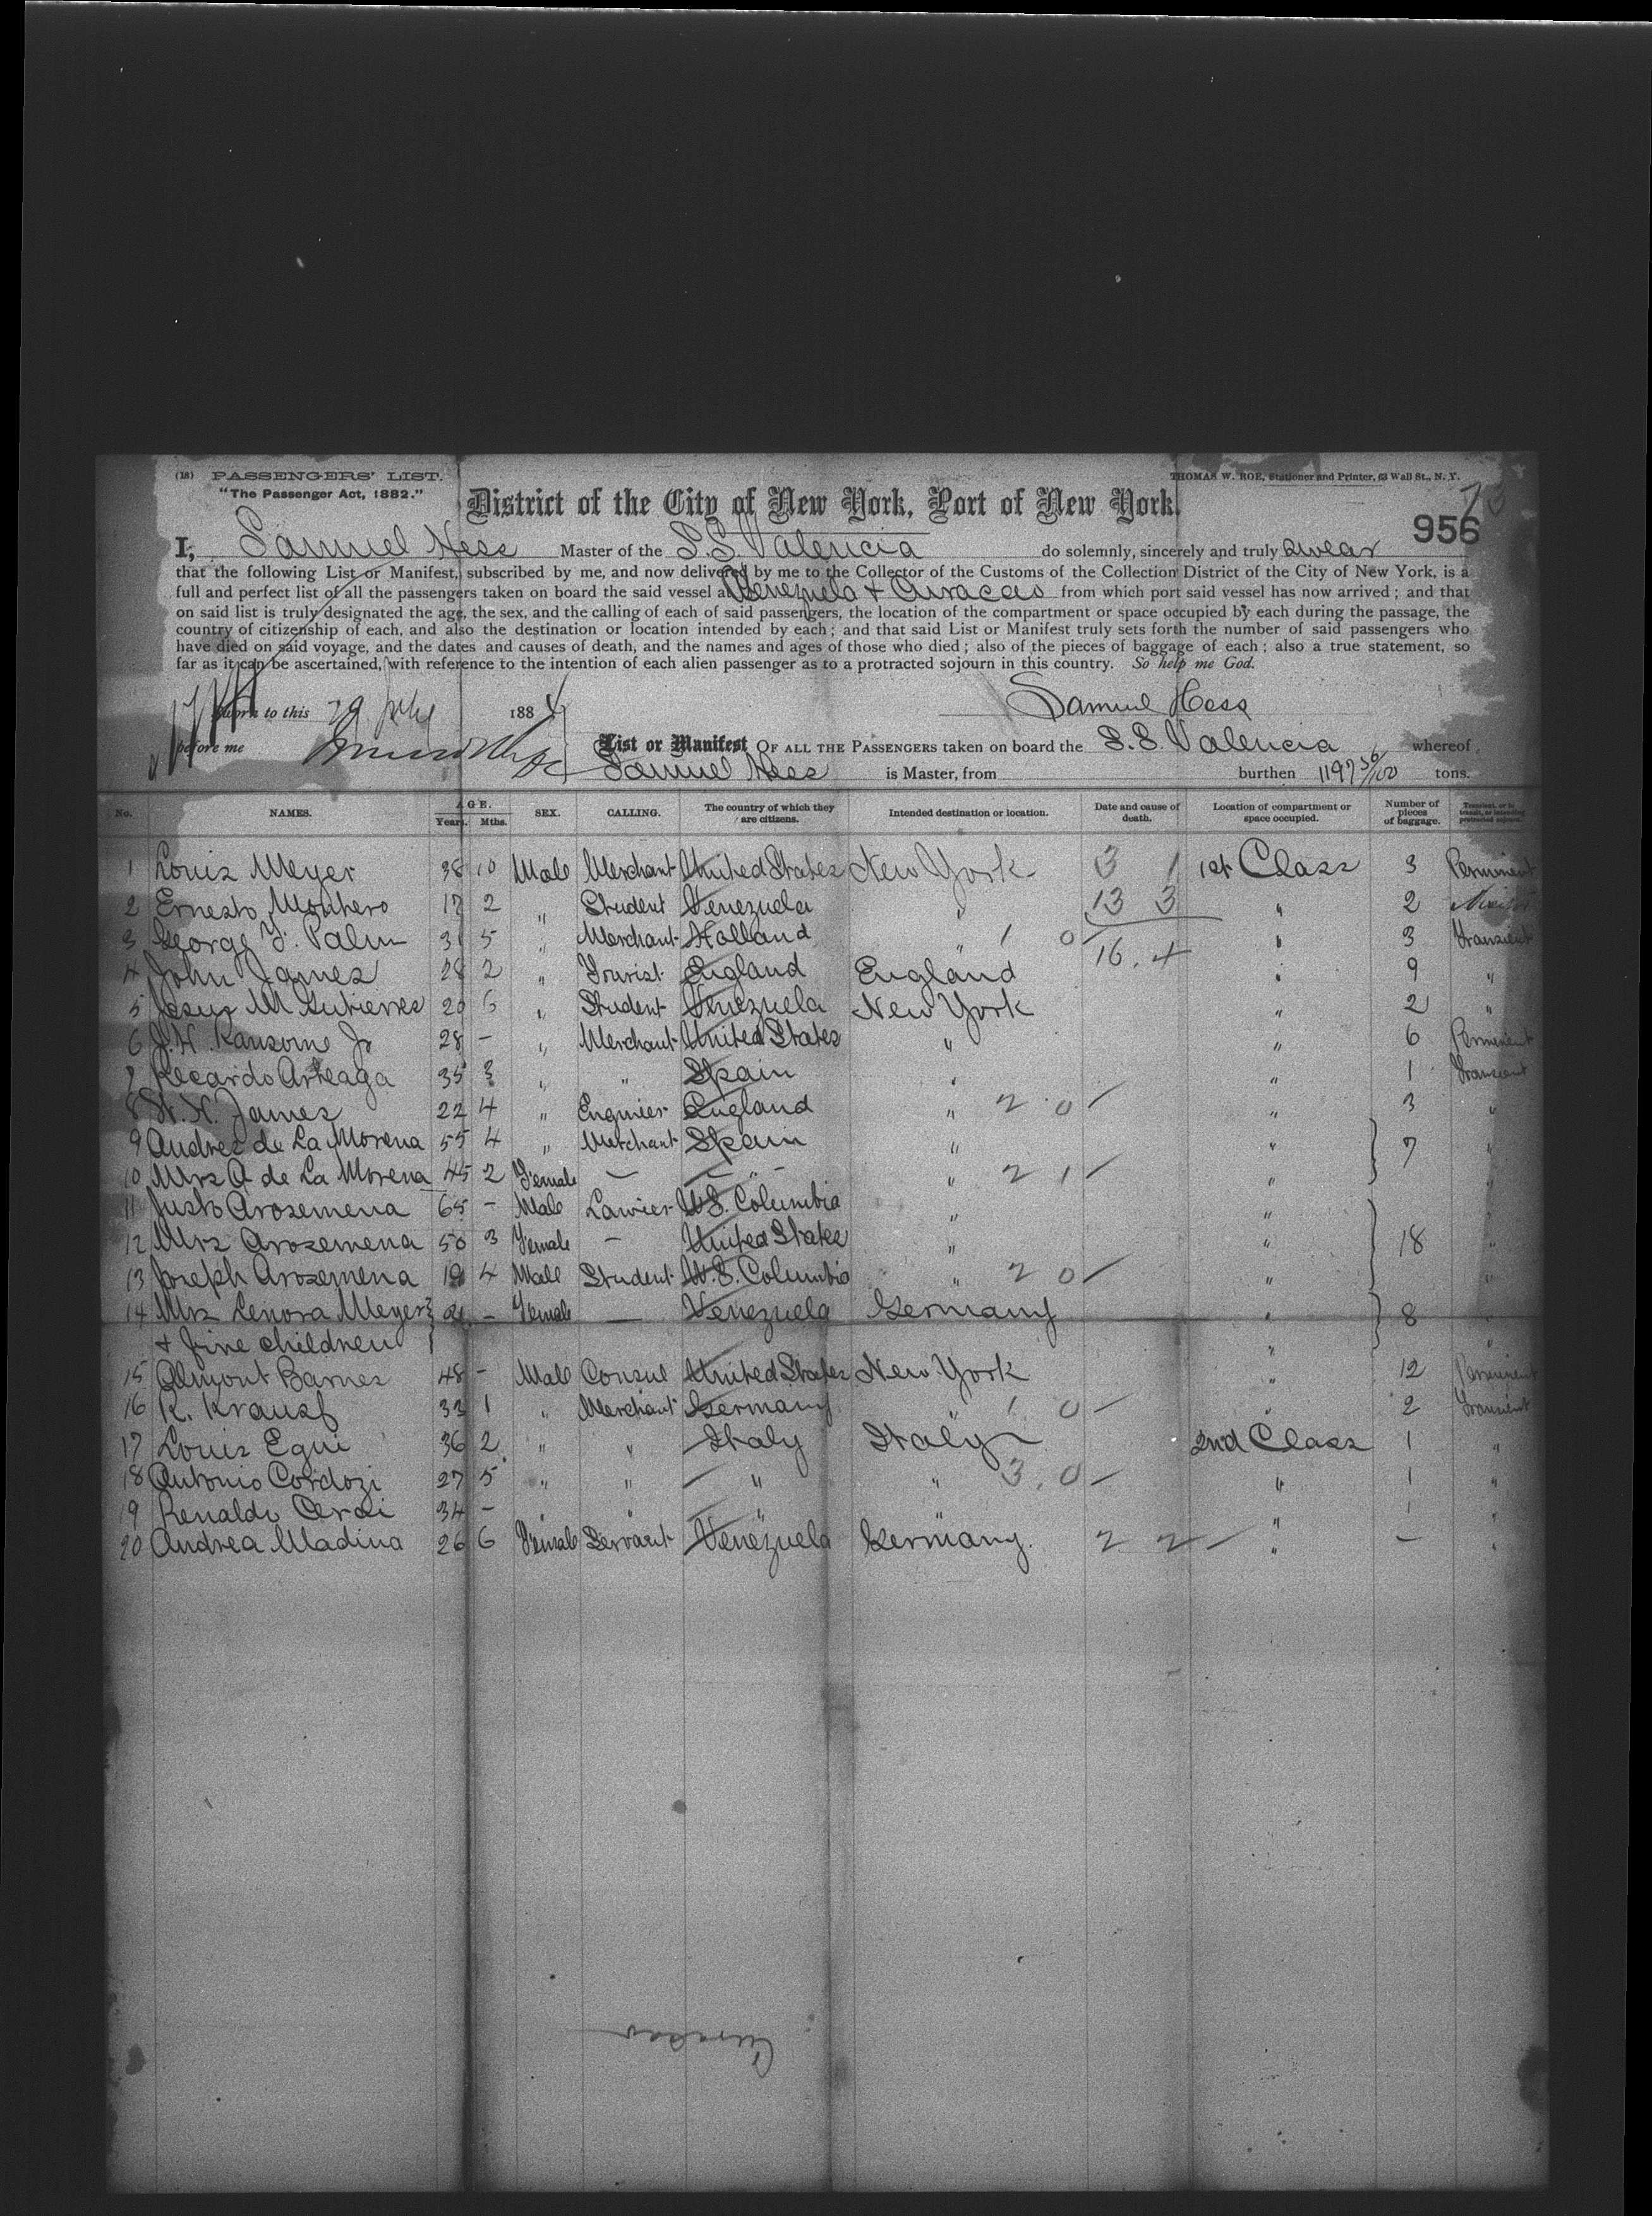 (18) PASSENGERS' LIST.
"The Passenger Act, 1882."
THOMAS W. ROE, Stationer and Printer, 63 Wall St., N. Y.
73
District of the City of New York, Port of New York.
956
I, Samuel Hess Master of the S.S. Valencia do solemnly, sincerely and truly swear
that the following List or Manifest, subscribed by me, and now delivered by me to the Collector of the Customs of the Collection District of the City of New York, is a
full and perfect list of all the passengers taken on board the said vessel at Venezuela + Curacao from which port said vessel has now arrived; and that
on said list is truly designated the age, the sex, and the calling of each of said passengers, the location of the compartment or space occupied by each during the passage, the
country of citizenship of each, and also the destination or location intended by each; and that said List or Manifest truly sets forth the number of said passengers who
have died on said voyage, and the dates and causes of death, and the names and ages of those who died; also of the pieces of baggage of each; also a true statement, so
far as it can be ascertained, with reference to the intention of each alien passenger as to a protracted sojourn in this country. So help me God.
Samuel Hess
Sworn to this 29 July 1884
before me
List or Manifest OF ALL THE PASSENGERS taken on board the S.S. Valencia whereof
Samuel Hess is Master, from burthen 1197 56/100 tons.
No. NAMES. AGE. Years. Mths. SEX. CALLING. The country of which they are citizens. Intended destination or location. Date and cause of death. Location of compartment or space occupied. Number of pieces of baggage. Transient, or in transit, or intending protracted sojourn.
1 Louis Meyer 38 10 Male Merchant United States New York 3 1 1st Class 3 Perminent
2 Ernesto Montero 17 2 " Student Venezuela " 13 3 " 2
3 George F. Palm 31 5 " Merchant Holland " 1 0 16.4 " 3 Transient
4 John James 28 2 " Tourist England England " 9 "
5 Jesus M Gutierres 20 6 " Student Venezuela New York " 2 "
6 J.H. Ransome Jr 28 - " Merchant United States " " 6 Perminent
7 Recardo Arteaga 35 3 " " Spain " " 1 Transient
8 W. H. James 22 4 " Enginier England " 2 0 " 3 "
9 Andres de La Morena 55 4 " Merchant Spain " " 7 "
10 Mrs A de La Morena 45 2 Female — " " 2 1 " "
11 Justo Arosemena 65 - Male Lawier U.S. Columbia " "
12 Mrs Arosemena 50 3 Female — United States " " 18 "
13 Joseph Arosemena 19 4 Male Student U.S. Columbia " 2 0 " "
14 Mrs Lenora Meyer - Female — Venezuela Germany " 8 "
+ five children " "
15 Almont Barnes 48 - Male Consul United States New York " 12 Perminent
16 K. Krauss 33 1 " Merchant Germany " 1 0 " 2 Transient
17 Louis Egui 36 2 " " Italy Italy 2nd Class 1 "
18 Antonio Cordozi 27 5 " " " " 3.0 " 1 "
19 Renaldo Cerai 34 - " " " " " 1 "
20 Andrea Madina 26 6 Female Servant Venezuela Germany. 2 2 " — "
Curacao